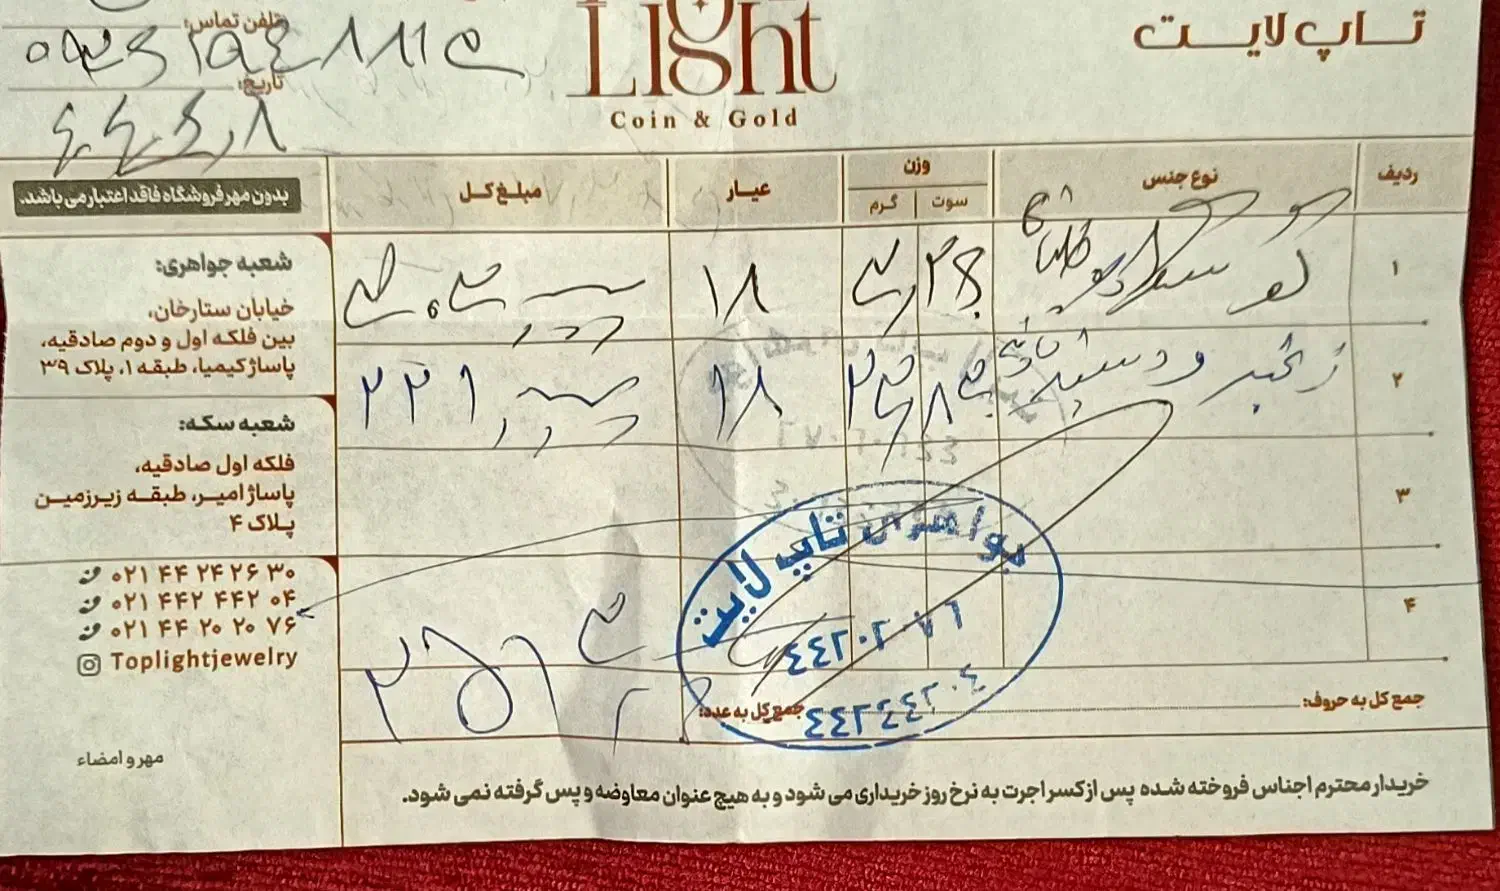 تاپ لایت
Light
Coin & Gold
تلفن تماس:
تاریخ:
ردیف
نوع جنس
وزن
سوت
گرم
عیار
مبلغ کل
بدون مهر فروشگاه فاقد اعتبار می باشد.
۱
۱۸
۲
زنجیر و دستبند
۱۸
۲۲۱
۳
۴
جمع کل به حروف:
جمع کل به عدد:
جواهری تاپ لایت
٤٤٢٠٢٠٧٦
٤٤٢٤٤٢٠٤
شعبه جواهری:
خیابان ستارخان،
بین فلکه اول و دوم صادقیه،
پاساژ کیمیا، طبقه ۱، پلاک ۳۹
شعبه سکه:
فلکه اول صادقیه،
پاساژ امیر، طبقه زیرزمین
پلاک ۴
۰۲۱ ۴۴ ۲۴ ۲۶ ۳۰
۰۲۱ ۴۴۲ ۴۴۲ ۰۴
۰۲۱ ۴۴ ۲۰ ۲۰ ۷۶
Toplightjewelry
مهر و امضاء
خریدار محترم اجناس فروخته شده پس از کسر اجرت به نرخ روز خریداری می شود و به هیچ عنوان معاوضه و پس گرفته نمی شود.